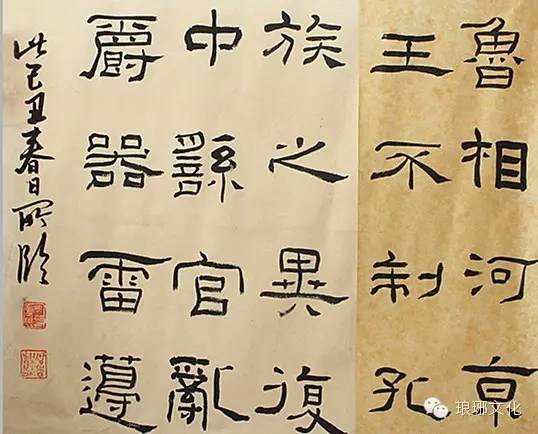 魯相河京
王不制孔
族之異復
中繇官亂
爵器雷
此己丑春日所臨
琅琊文化